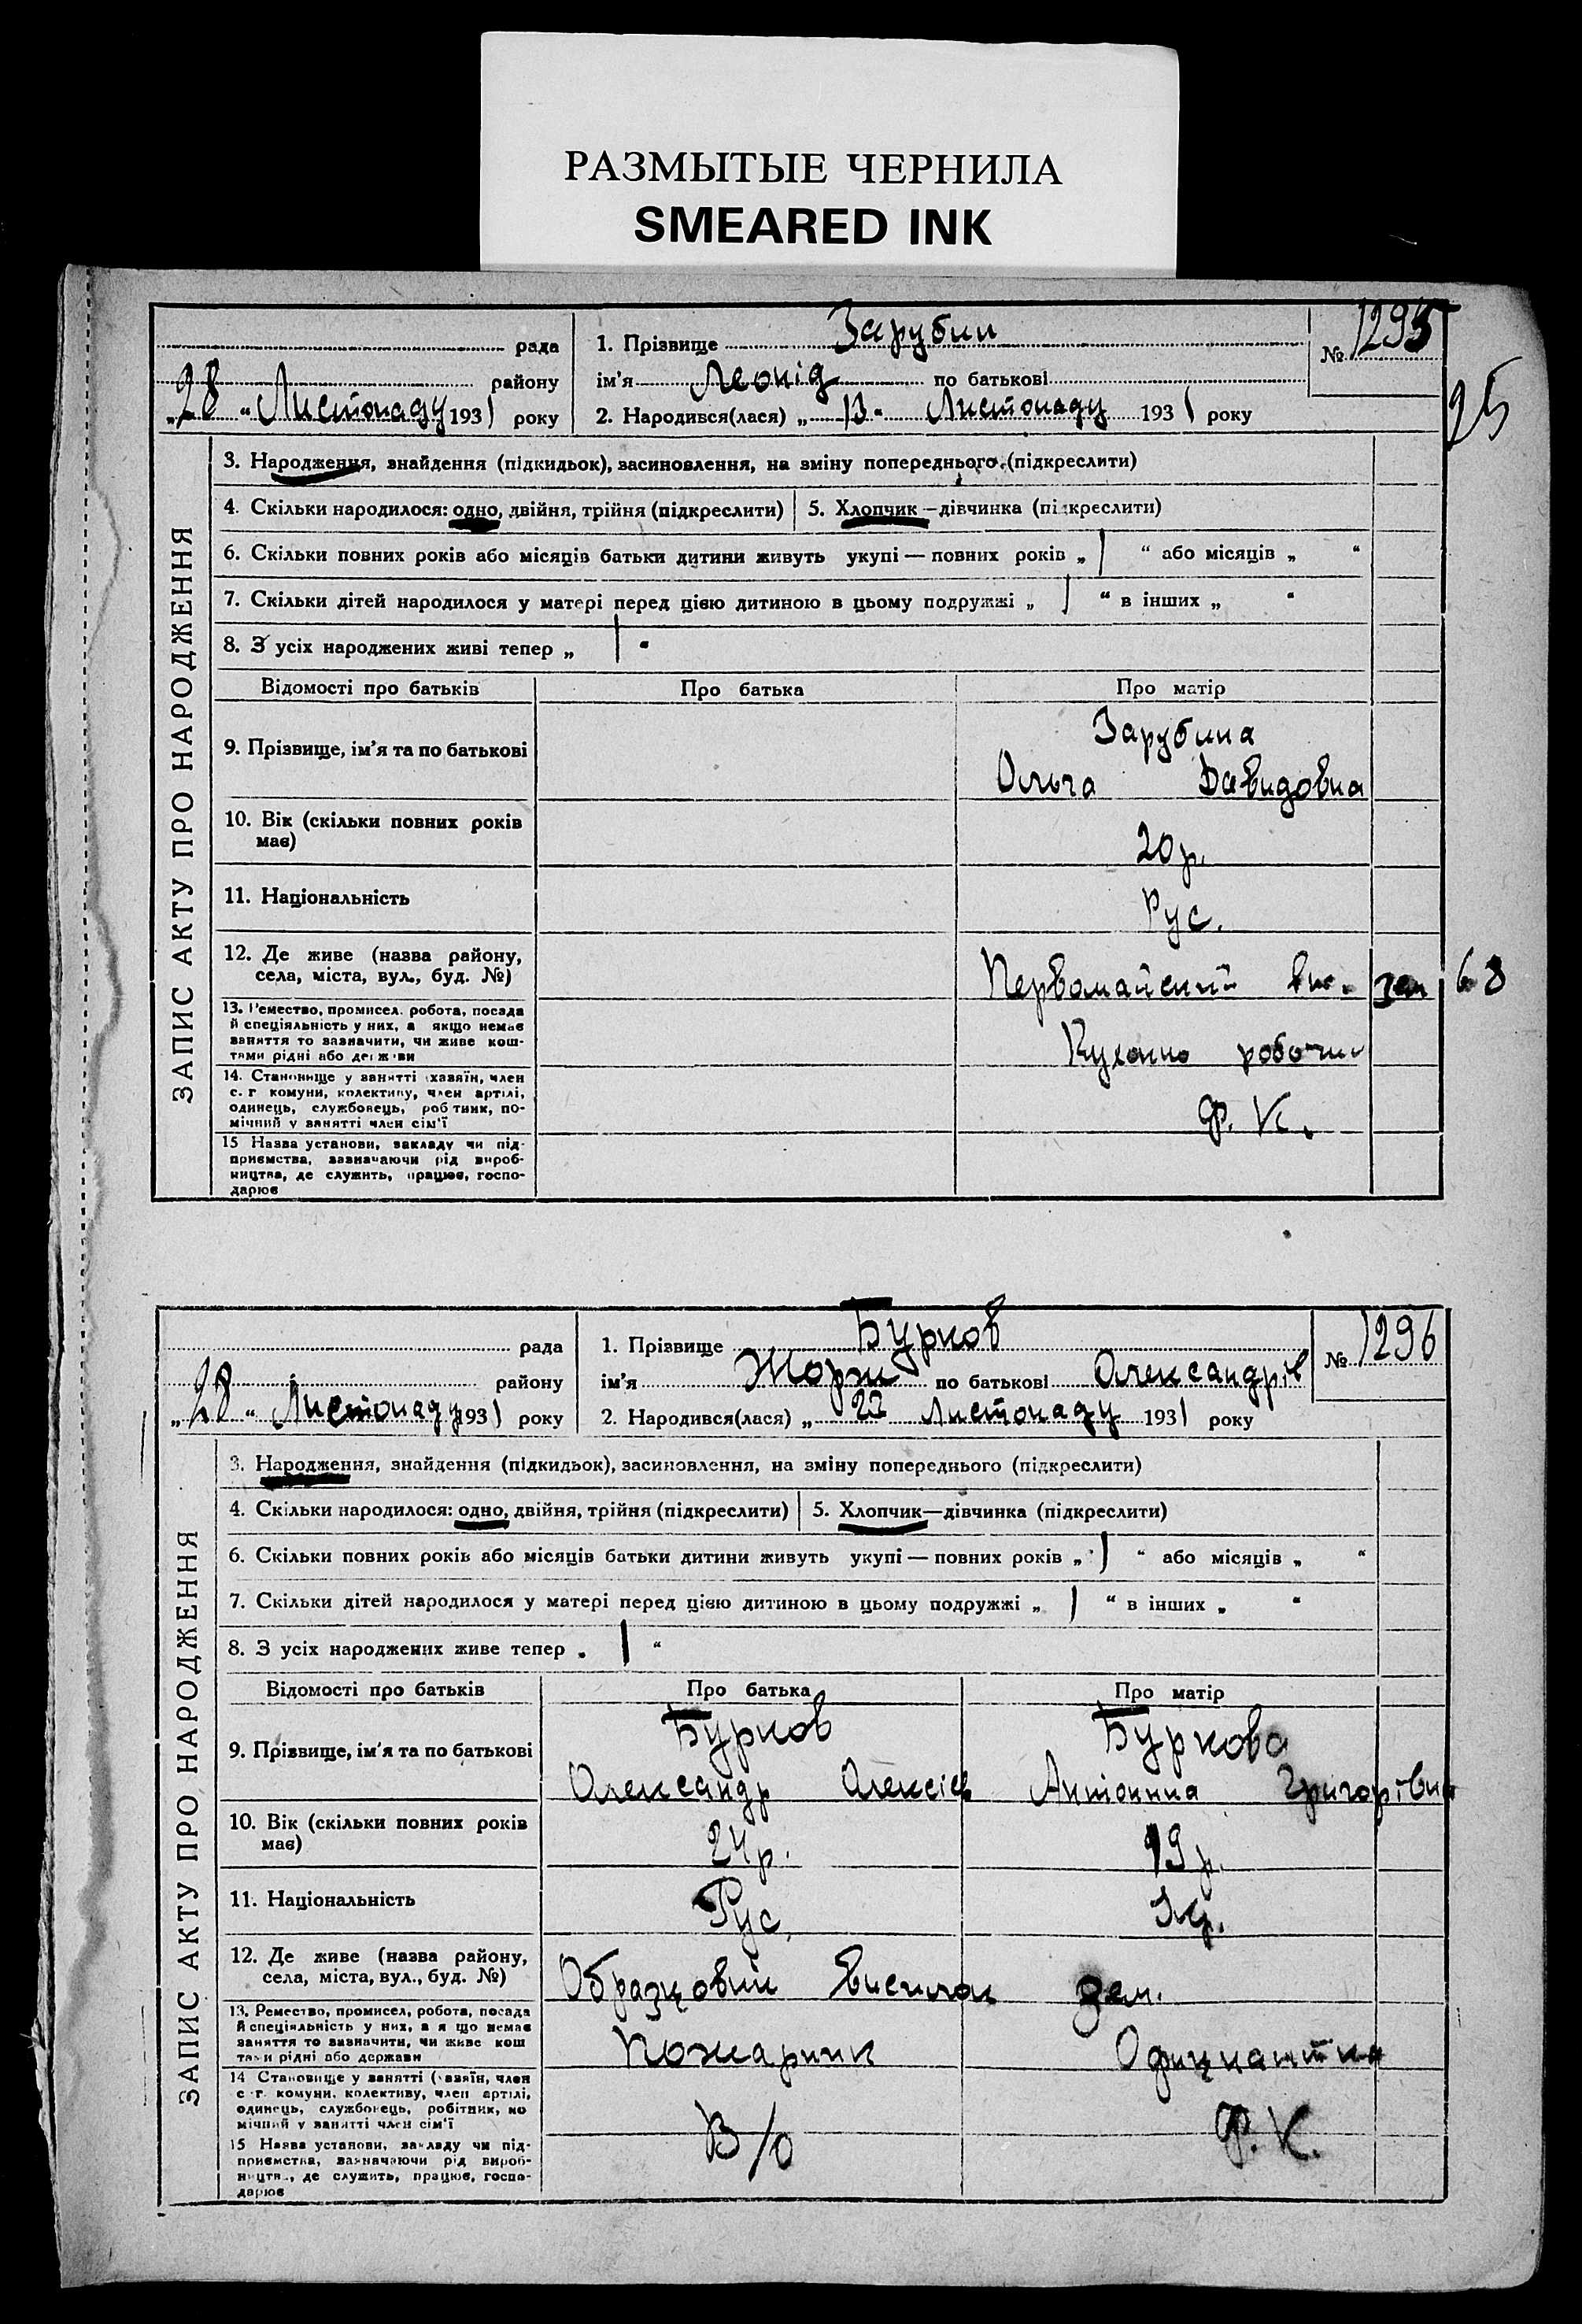 РАЗМЫТЫЕ ЧЕРНИЛА
SMEARED INK
ЗАПИС АКТУ ПРО НАРОДЖЕННЯ
рада
району
„28“ Листопаду 1931 року
1. Прізвище Зарубин
ім'я Леонід по батькові
2. Народився(лася) „13“ Листопаду 1931 року
№ 1295
95
3. Народження, знайдення (підкидьок), засиновлення, на зміну попереднього (підкреслити)
4. Скільки народилося: одно, двійня, трійня (підкреслити)
5. Хлопчик—дівчинка (підкреслити)
6. Скільки повних років або місяців батьки дитини живуть укупі — повних років „ “ або місяців „ “
7. Скільки дітей народилося у матері перед цією дитиною в цьому подружжі „ “ в інших „ “
8. З усіх народжених живі тепер „ “
Відомості про батьків
Про батька
Про матір
9. Прізвище, ім'я та по батькові
Зарубина
Ольга Давидовна
10. Вік (скільки повних років
має)
20 р.
11. Національність
Рус.
12. Де живе (назва району,
села, міста, вул., буд. №)
Первомайский вис. зем 68
13. Ремество, промисел, робота, посада
й спеціяльність у них, а якщо немає
заняття то зазначити, чи живе кош-
тами рідні або держави
Кухонно робочи
14. Становище у занятті (хазяїн, член
с.-г. комуни, колективу, член артілі,
одинець, службовець, робітник, по-
мічний у занятті член сім'ї
Ф. К.
15 Назва установи, закладу чи під-
приємства, зазначаючи рід вироб-
ництва, де служить, працює, госпо-
дарює
ЗАПИС АКТУ ПРО НАРОДЖЕННЯ
рада
району
„28“ Листопаду 1931 року
1. Прізвище Бурков
ім'я Жорж по батькові Олександрів
2. Народився(лася) „ 23 Листопаду 1931 року
№ 1296
3. Народження, знайдення (підкидьок), засиновлення, на зміну попереднього (підкреслити)
4. Скільки народилося: одно, двійня, трійня (підкреслити)
5. Хлопчик—дівчинка (підкреслити)
6. Скільки повних років або місяців батьки дитини живуть укупі — повних років „ “ або місяців „ “
7. Скільки дітей народилося у матері перед цією дитиною в цьому подружжі „ “ в інших „ “
8. З усіх народжених живе тепер „ “
Відомості про батьків
Про батька
Про матір
9. Прізвище, ім'я та по батькові
Бурков
Олександр Олексієв
Буркова
Антонина Григорівна
10. Вік (скільки повних років
має)
24 р.
19 р.
11. Національність
Рус.
Укр.
12. Де живе (назва району,
села, міста, вул., буд. №)
Образцовий Висилок зем.
13. Ремество, промисел, робота, посада
й спеціяльність у них, а якщо немає
заняття то зазначити, чи живе кош
тами рідні або держави
Пожарник
Официантка
14 Становище у занятті (хазяїн, член
с-г. комуни, колективу, член артілі,
одинець, службовець, робітник, по
мічний у занятті член сім'ї
В/О
Ф. К.
15 Назва установи, закладу чи під-
приємства, зазначаючи рід вироб-
ництва, де служить, працює, госпо-
дарює